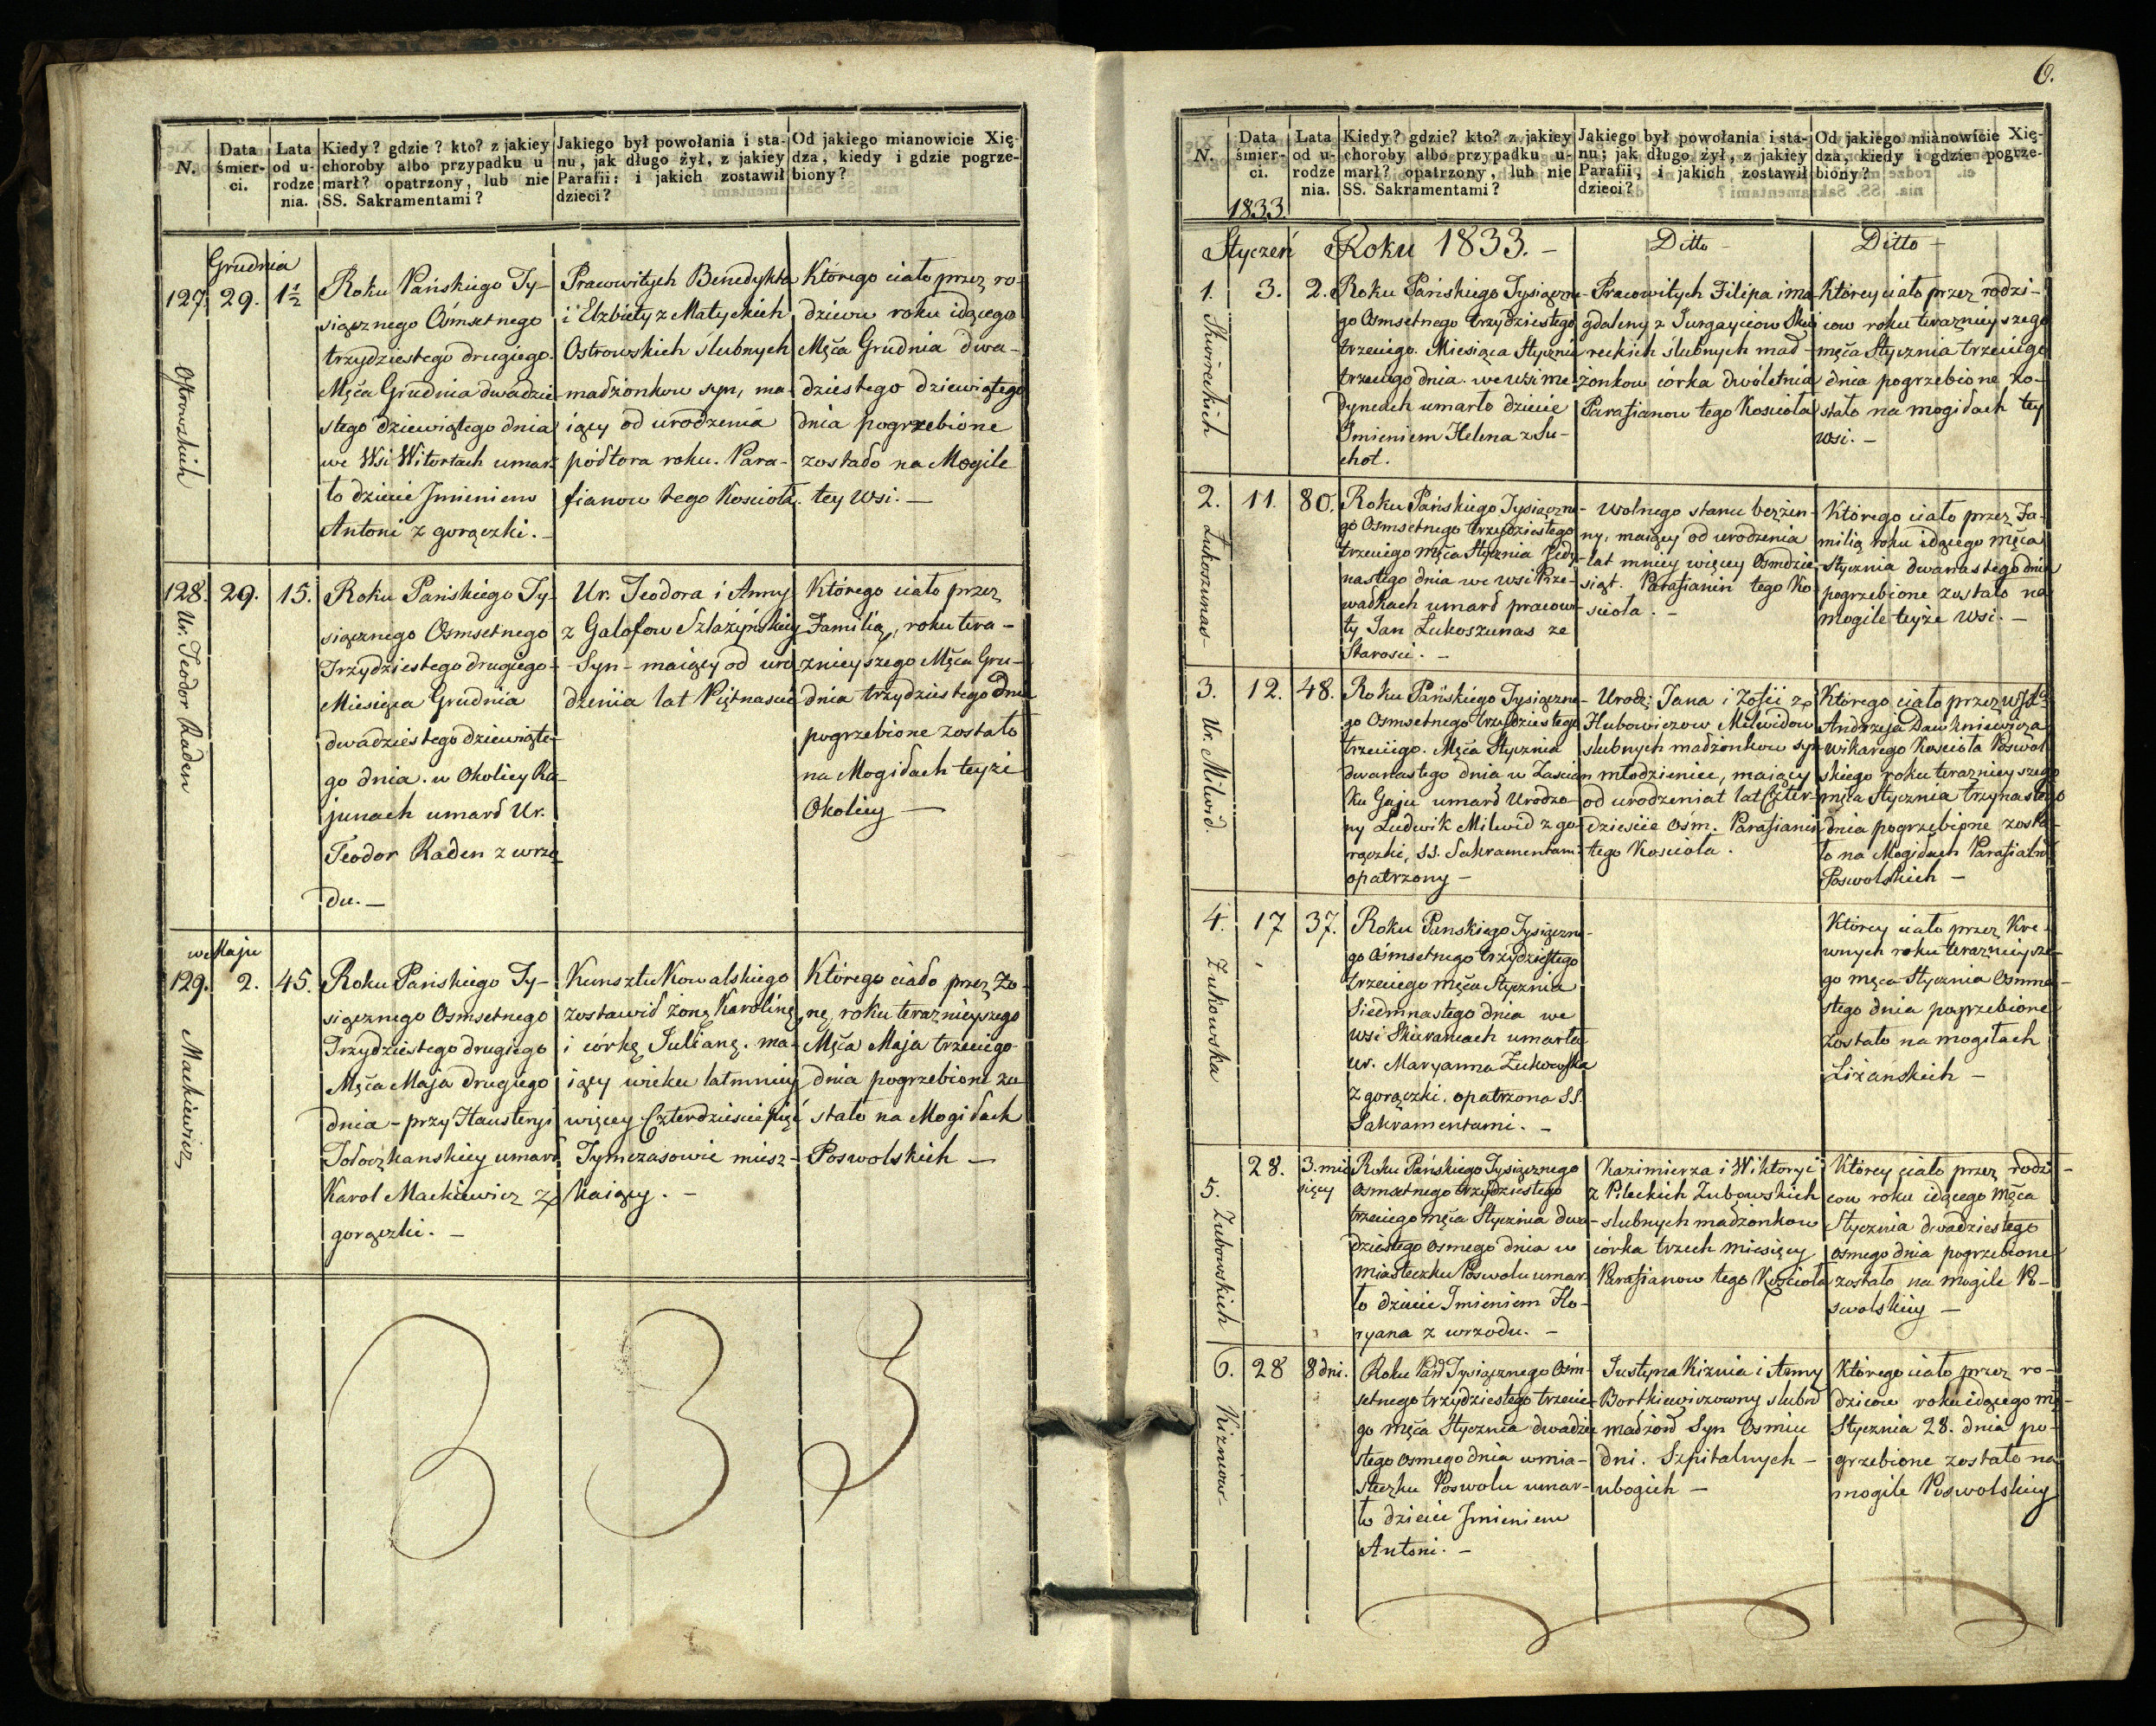 N.
Data śmier-ci.
Lata od u-rodze nia.
Kiedy? gdzie? kto? z jakiey
choroby albo przypadku u
marł? opatrzony, lub nie
SS. Sakramentami?
Jakiego był powołania i sta-
nu, jak długo żył, z jakiey
Parafii: i jakich zostawił
dzieci?
Od jakiego mianowicie Xię-
dza, kiedy i gdzie pogrze-
biony?
Grudnia
127. 29. 1½
Ostrowskich
Roku Pańskiego Ty-
siącznego Ósmsetnego
trzydziestego drugiego.
Męca Grudnia dwadzie
stego dziewiątego dnia
we Wsi Witortach umar
ło dziecie Jmieniem
Antoni z gorączki. —
Pracowitych Benedykta
i Elzbiety z Matyckich
Ostrowskich slubnych
madżonkow syn, ma-
iący od urodzenia
półtora roku. Para-
fianow tego Kościoła.
Którego ciało przez ro-
dziców roku idącego
Męca Grudnia dwa-
dziestego dziewiątego
dnia pogrzebione
zostało na Mogile
tey wsi. —
128. 29. 15.
Ur. Teodor Raden
Roku Pańskiego Ty-
siącznego Osmsetnego
Trzydziestego drugiego
Miesiąca Grudnia
dwadziestego dziewiąte-
go dnia. w Okolicy Ra-
junach umarł Ur.
Teodor Raden z wrzo
du. —
Ur. Teodora i Anny
z Galofow Szlażyńskiey
Syn - maiący od uro
dzenia lat Piętnascie
Którego ciało przez
Familią, roku tera-
znieyszego Męca Gru-
dnia trzydziestego dnia
pogrzebione zostało
na Mogiłach teyże
Okolicy —
we Maju
129. 2. 45.
Mackiewicz
Roku Pańskiego Ty-
siącznego Osmsetnego
Trzydziestego drugiego
Męca Maja drugiego
dnia - przy Hausteryi
Tołoczkanskiey umarł
Karol Mackiewicz z
gorączki. —
Kunsztu Kowalskiego
zostawił żonę Karolinę,
i córkę Julianę. ma-
iący wieku lat mniey
więcey Czterdziescie pięć
Tymczasowie miesz-
kaiący. —
Którego ciało przez żo-
nę, roku teraznieyszego
Męca Maja trzeciego
dnia pogrzebione zo
stało na Mogiłach
Poswolskich —
6.
N.
Data śmier-ci.
Lata od u-rodze nia.
Kiedy? gdzie? kto? z jakiey
choroby albo przypadku u-
marł? opatrzony, lub nie
SS. Sakramentami?
Jakiego był powołania i sta-
nu; jak długo żył, z jakiey
Parafii, i jakich zostawił
dzieci?
Od jakiego mianowicie Xię-
dza, kiedy i gdzie pogrze-
biony?
1833.
Styczeń Roku 1833. — Ditto — Ditto —
1. 3. 2.
Skoreckich
Roku Pańskiego Tysiączne-
go Osmsetnego trzydziestego
trzeciego. Miesiąca Stycznia
trzeciego dnia. we wsi Me
dyncach umarło dziecie
Jmieniem Helena z Su-
chot.
Pracowitych Filipa i Ma-
gdaleny z Jurgayciow Sko
reckich ślubnych mad-
żonkow córka dwóletnia
Parafianow tego Kościoła
Którey ciało przez rodzi-
cow roku teraznieyszego
męca Stycznia trzeciego
dnia pogrzebione zo-
stało na mogiłach tey
wsi. —
2. 11. 80.
Łukoszunas
Roku Pańskiego Tysiączne-
go Osmsetnego trzydziestego
trzeciego męca Stycznia Jedy-
nastego dnia we wsi Prze-
wadkach umarł pracowi-
ty Jan Łukoszunas ze
Starosci. —
Wolnego stanu bezżen-
ny, maiący od urodzenia
lat mniey więcey Osmdzie-
siąt. Parafianin tego Ko
scioła. —
Którego ciało przez Fa-
milią roku idącego męca
Stycznia dwanastego dnia
pogrzebione zostało na
mogile teyże wsi. —
3. 12. 48.
Ur. Milwid.
Roku Pańskiego Tysiączne-
go Osmsetnego trzydziestego
trzeciego. Męca Stycznia
dwanastego dnia w Zascian
ku Gaju umarł Urodzo-
ny Ludwik Milwid z go-
rączki, SS. Sakramentami
opatrzony —
Urodz: Jana i Zofii z
Hubowiczow Milwidow
slubnych madżonkow syn
młodzieniec, maiący
od urodzenia lat Czter-
dziescie ośm. Parafianin
tego Kościoła.
Którego ciało przez
Andrzeja Dawkniewicza
wikarego Kościoła Poswol
skiego roku teraznieyszego
męca Stycznia trzynastego
dnia pogrzebione zosta-
ło na Mogiłach Parafialnych
Poswolskich —
4. 17 37.
Zukowska
Roku Panskiego Tysiączne-
go Osmsetnego trzydziestego
trzeciego męca Stycznia
Siedmnastego dnia we
wsi Skierancach umarła
ur. Maryanna Zukowska
z gorączki. opatrzona SS.
Sakramentami. —
Którey ciało przez Kre-
wnych roku teraznieysze-
go męca Stycznia Osmna-
stego dnia pogrzebione
zostało na mogiłach
Liżanskich —
5. 28. 3. mie
sięcy
Zubowskich
Roku Pańskiego Tysiącznego
osmsetnego trzydziestego
trzeciego męca Stycznia dwa-
dziestego osmego dnia w
miasteczku Poswolu umar
ło dziecie Jmieniem Flo-
ryana z wrzodu. —
Kazimierza i Wiktoryi
z Pileckich Zubowskich
slubnych madżonkow
córka trzech miesięcy
Parafianow tego Kościoła
Którey ciało przez rodzi-
cow roku idącego męca
Stycznia dwadziestego
osmego dnia pogrzebione
zostało na mogile Po-
swolskiey —
6. 28 8 dni.
Kizniow
Roku Pań Tysiącznego Osm-
setnego trzydziestego trzecie-
go męca Stycznia dwadzie
stego osmego dnia w mia-
steczku Poswolu umar-
ło dziecie Jmieniem
Antoni. —
Justyna Kiznia i Anny
Bortkiewiczowny slubn
madżon Syn Osmiu
dni. Szpitalnych —
ubogich —
Którego ciało przez ro-
dzicow roku idącego mę-
Stycznia 28. dnia po-
grzebione zostało na
mogile Poswolskiey